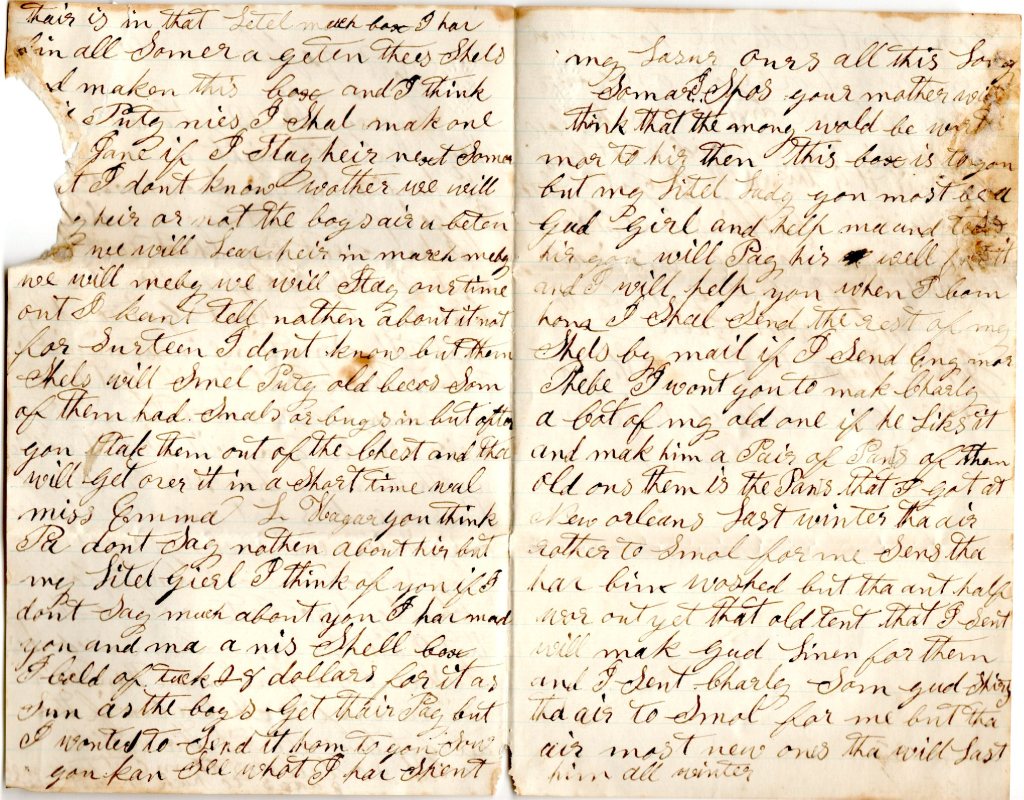 thair is in that Litel much box I hav
bin all Somer a geten thees Shels
maken this box and I think
Puty nies I Shal mak one
Jane if I Stay heir next Somer
I dont know wother we will
heir or not the boys air a beten
we will Lear heir in march meby
we will meby we will Stay our time
out I kant tell nothen about it not
for Surteen I dont know but them
Shels will Smel Puty old becos Som
of them had Snals or buges in but after
you tak them out of the Chest and tha
will get over it in a Short time wal
miss Emma L Hagar you think
Pa dont Say nothen about hir but
my Litel Gierl I think of you if I
dont Say much about you I hav mad
you and ma a nis Shell box
I cold of tuck 28 dollars for it as
Sun as the boys Get thair Pay but
I wonted to Send it hom to you Sow
you kan See what I hav Spent
my Lasur ours all this Long
Somar I Spos your mother will
think that the mony wold be wort
mor to hir then this box is to you
but my Litel Lady you most be a
Gud girl and help ma and
his you will Pay hir well for it
and I will help you when I com
home I Shal Send the rest of my
Shels by mail if I Send Eny mor
Phebe I wont you to mak Charly
a Cot of my old one if he Liks it
and mak him a Pair of Pans of them
old ons them is the Pans that I got at
New orleans Last winter tha air
rother to Smol for me Sens tha
hav bin woshed but tha ant half
wor out yet that old tent that I Sent
will mak Gud Linen for them
and I Sent Charly Som gud Shirts
tha air to Smol for me but tha
air most new ones tha will Last
him all winter